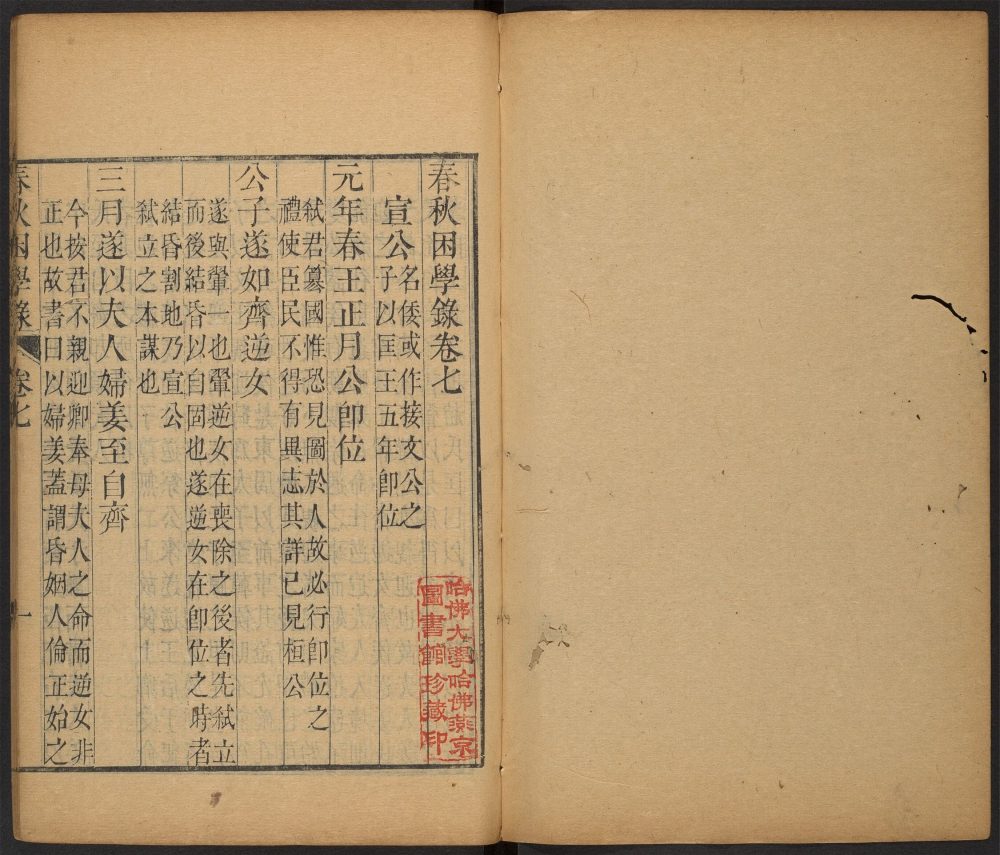 春秋困學錄卷七
宣公名倭或作接文公之
子以匡王五年卽位
元年春王正月公卽位
弑君簒國惟恐見圖於人故必行卽位之
禮使臣民不得有異志其詳已見桓公
公子遂如齊逆女
遂與翬一也翬逆女在喪除之後者先弑立
而後結昏以自固也遂逆女在卽位之時者
結昏割地乃宣公
弑立之本謀也
三月遂以夫人婦姜至自齊
今按君不親迎卿奉母夫人之命而逆女非
正也故書曰以婦姜蓋謂昏姻人倫正始之
春秋困學錄 卷七 一
哈佛大學哈佛燕京
圖書館珍藏印